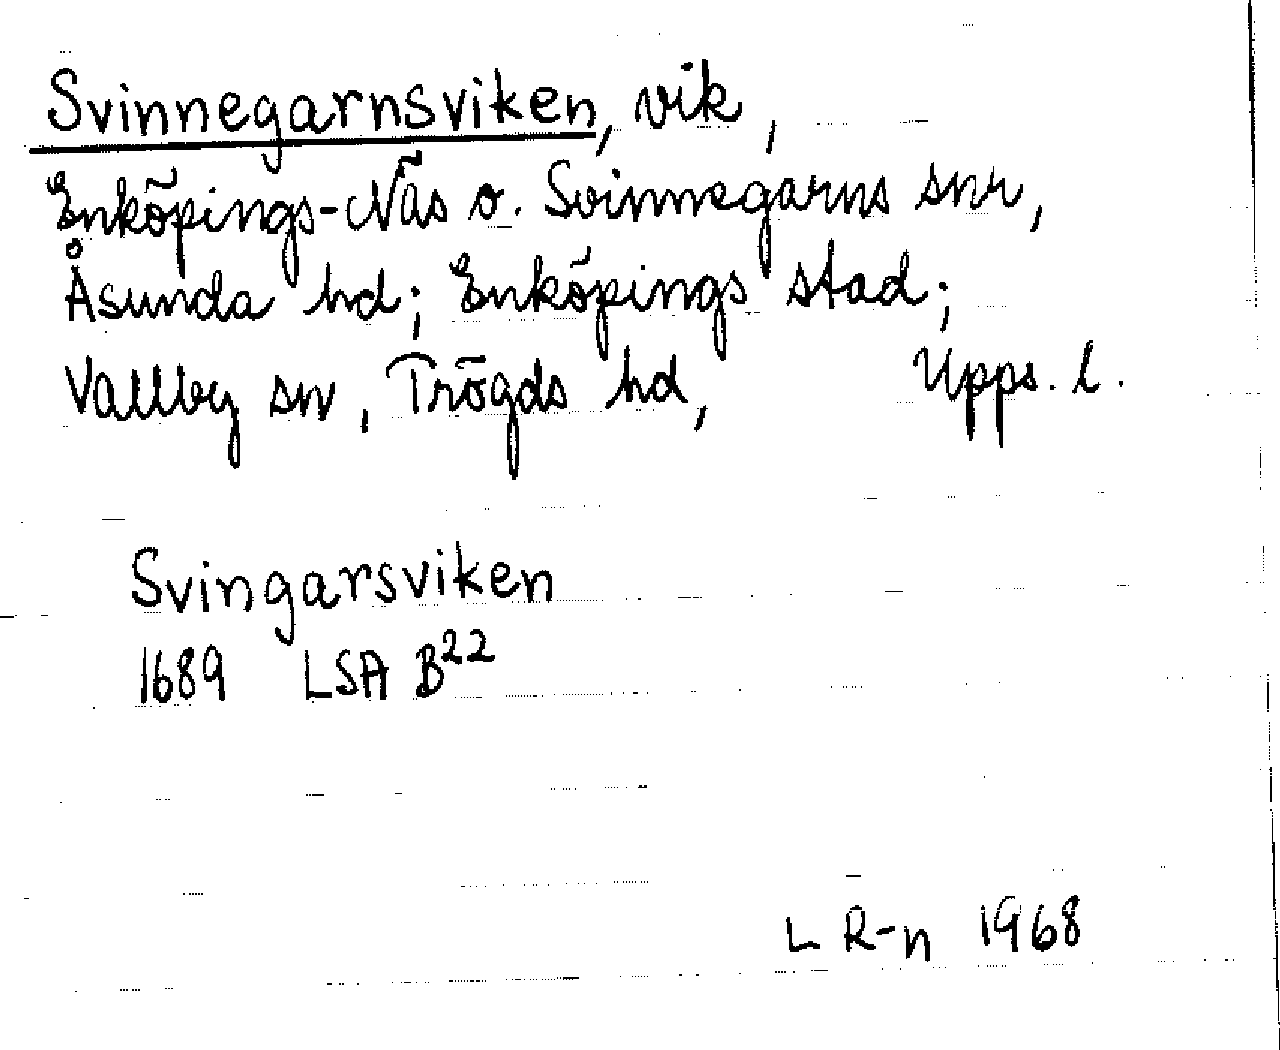 Svinnegarnsviken, vik,
Enköpings-Näs o. Svinnegarns snr,
Åsunda hd; Enköpings stad;
Vallby sn, Trögds hd, Upps. l.
Svingarsviken
1689 LSA B²²
L R-n 1968